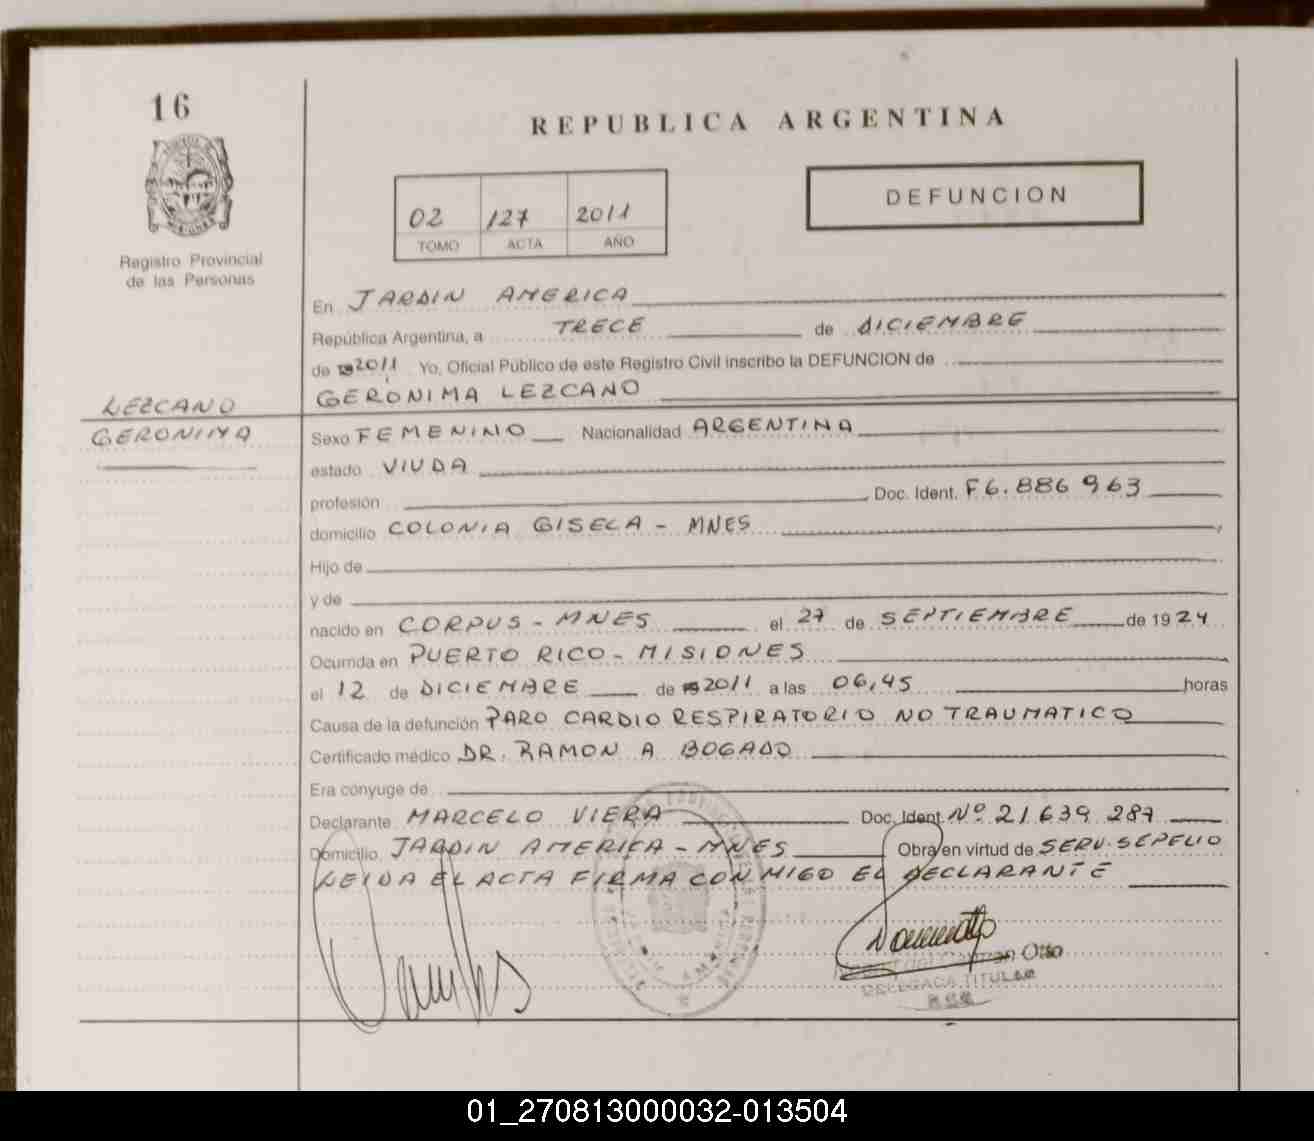 16
REPUBLICA ARGENTINA
DEFUNCION
02 127 2011
TOMO ACTA AÑO
Registro Provincial
de las Personas
En JARDIN AMERICA
República Argentina, a TRECE de DICIEMBRE
de 2011 Yo, Oficial Público de este Registro Civil inscribo la DEFUNCION de
GERONIMA LEZCANO
LEZCANO
GERONIMA
Sexo FEMENINO Nacionalidad ARGENTINA
estado VIUDA
profesión Doc. Ident. F6.886 963
domicilio COLONIA GISELA - MNES
Hijo de
y de
nacido en CORPUS - MNES el 27 de SEPTIEMBRE de 1924
Ocurrida en PUERTO RICO - MISIONES
el 12 de DICIEMBRE de 2011 a las 06,45 horas
Causa de la defunción PARO CARDIO RESPIRATORIO NO TRAUMATICO
Certificado médico DR. RAMON A BOGADO
Era cónyuge de
Declarante MARCELO VIERA Doc. Ident. Nº 21.639.287
Domicilio JARDIN AMERICA - MNES Obra en virtud de SERV. SEPELIO
LEIDA EL ACTA FIRMA CON MIGO EL DECLARANTE
Otto
DELEGADA TITULAR
01_270813000032-013504